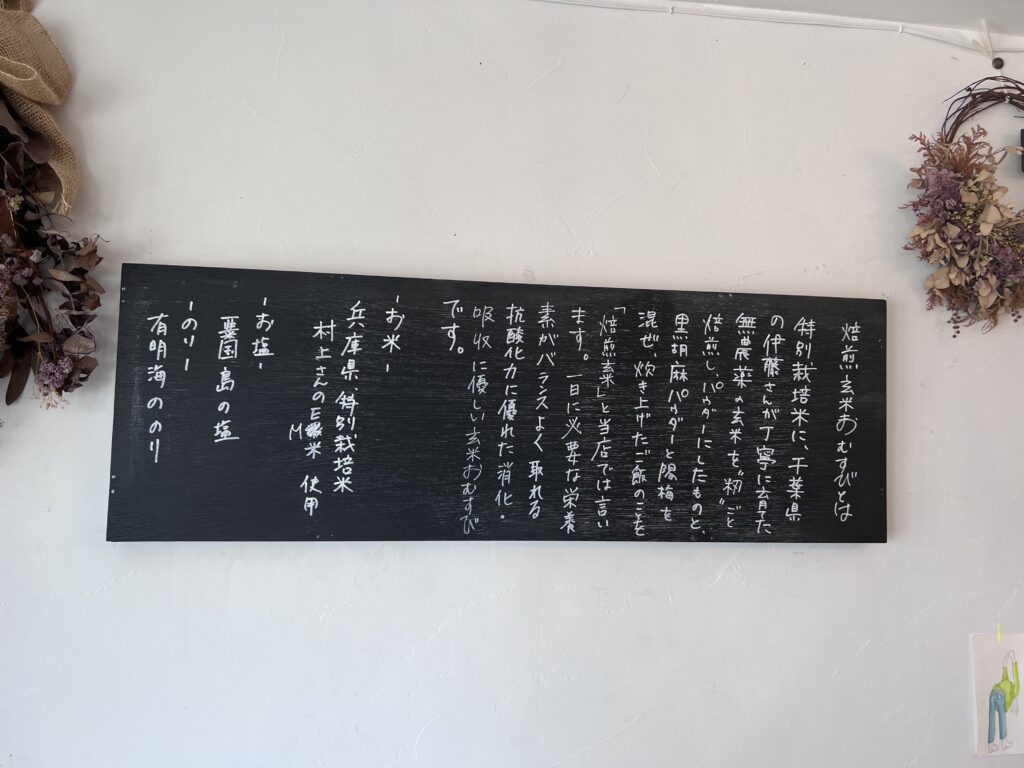 焙煎玄米おむすびとは
特別栽培米に、千葉県
の伊藤さんが丁寧に育てた
無農薬の玄米を"籾"ごと
焙煎し、パウダーにしたものと、
黒胡麻パウダーと陽梅を
混ぜ、炊き上げたご飯のことを
「焙煎玄米」と当店では言い
ます。一日に必要な栄養
素がバランスよく取れる
抗酸化力に優れた消化・
吸収に優しい玄米おむすび
です。
-お米-
兵庫県 特別栽培米
村上さんのEM米 使用
-お塩-
島の塩
-のり-
有明海ののり